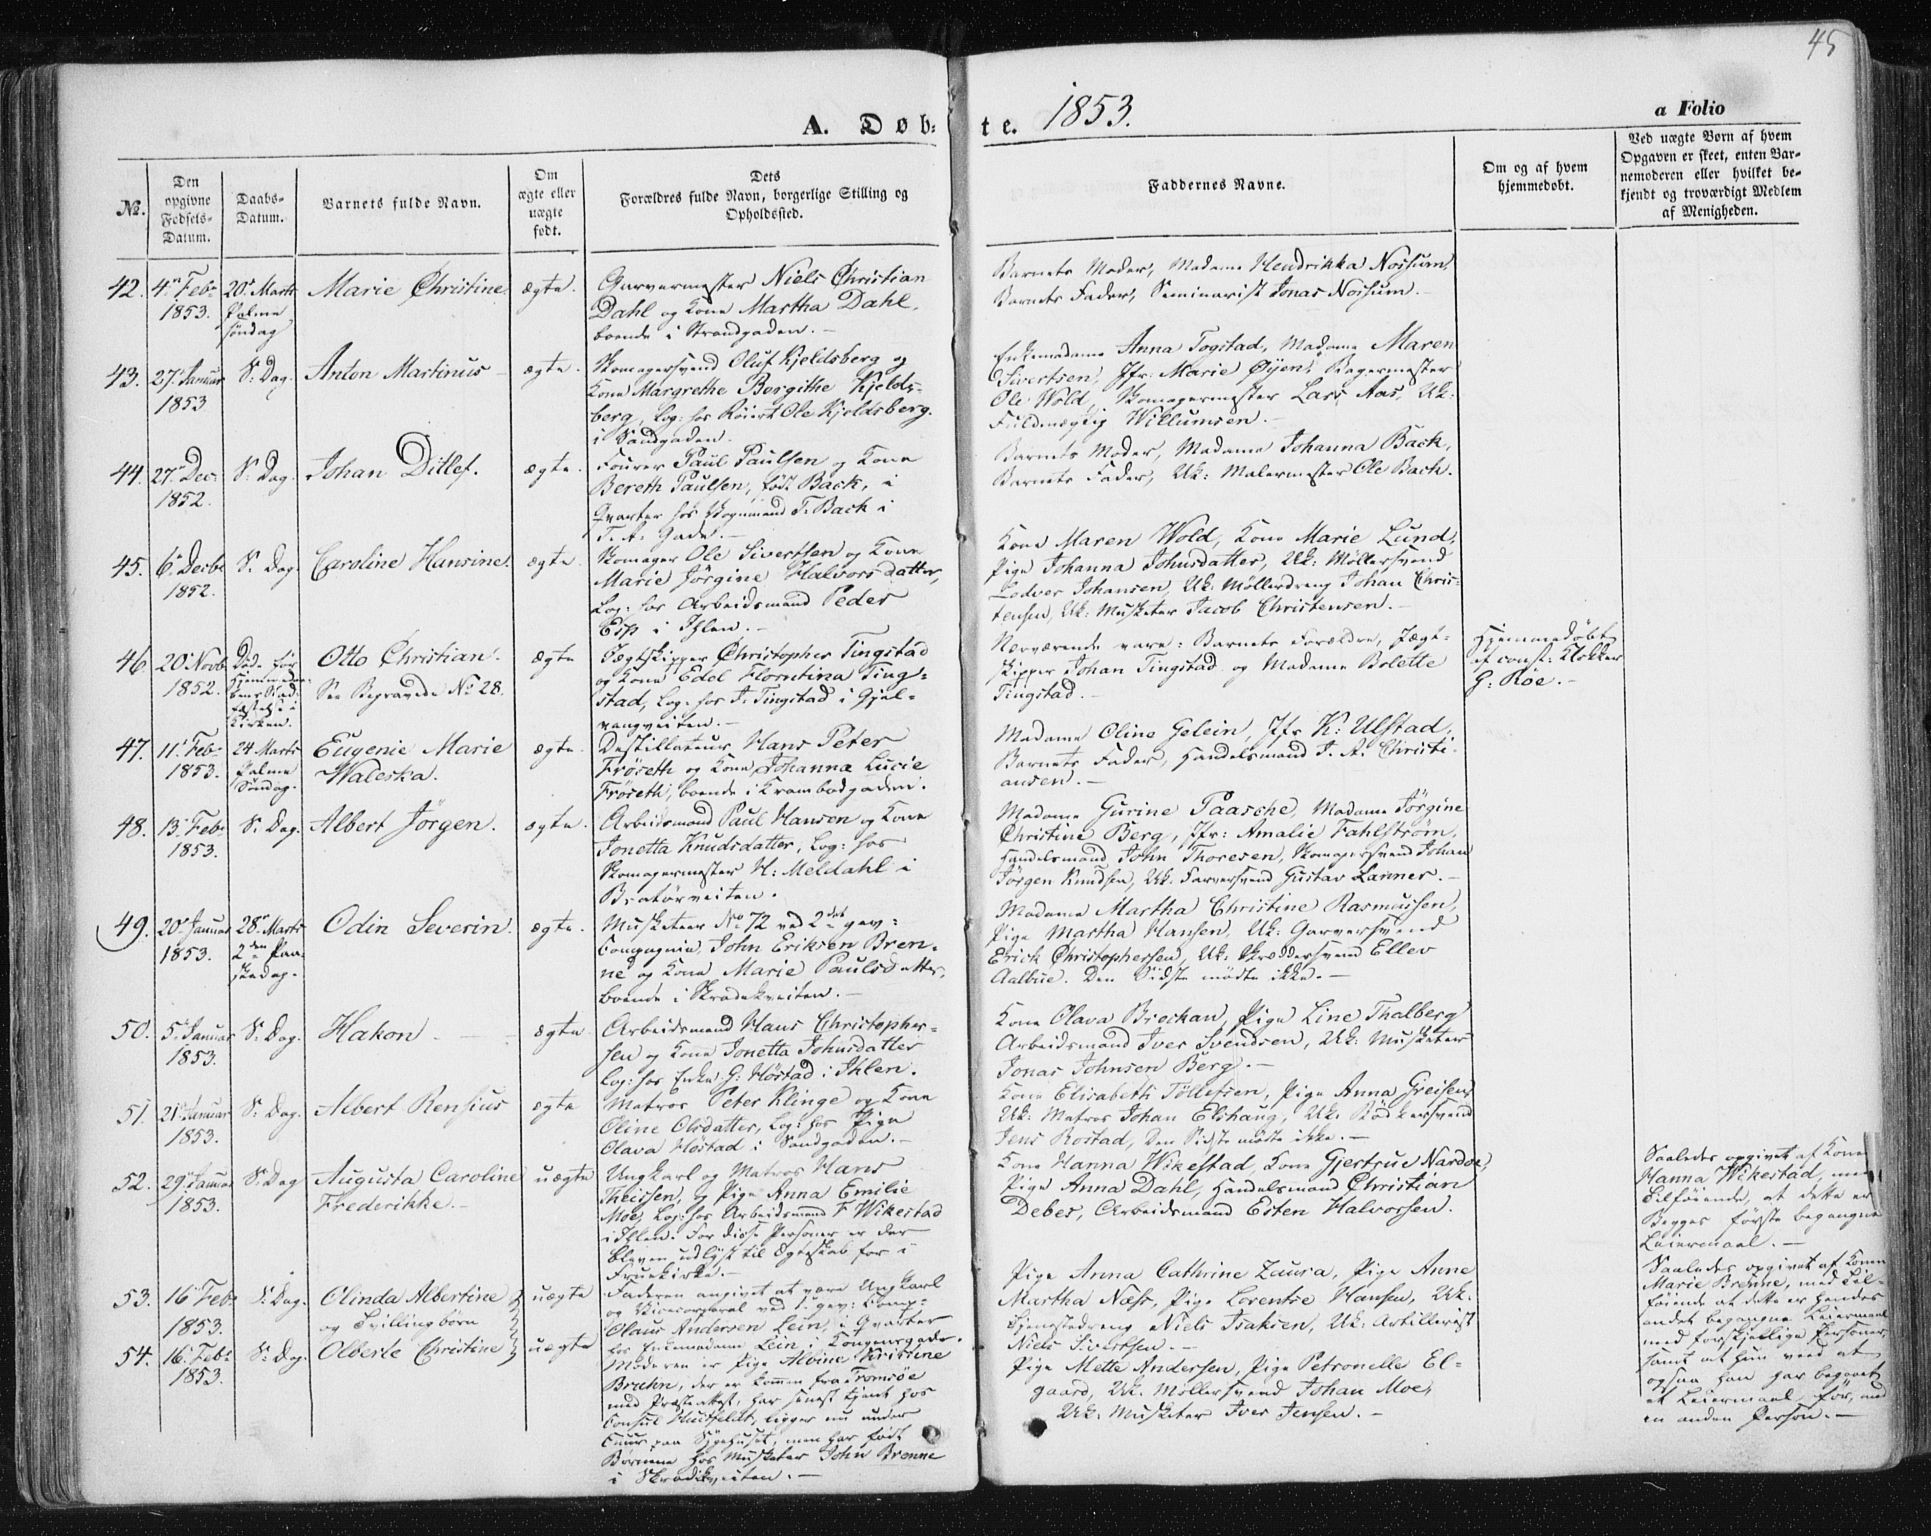 45
A. Døb-te. 1853.
a Folio
№.
Den opgivne Fødsels-Datum.
Daabs-Datum.
Barnets fulde Navn.
Om ægte eller uægte født.
Dets Forældres fulde Navn, borgerlige Stilling og Opholdssted.
Faddernes Navne.
Om og af hvem hjemmedøbt.
Ved uægte Børn af hvem Opgaven er skeet, enten Barnemoderen eller hvilket bekjendt og troværdigt Medlem af Menigheden.
42. 4. Feb. 1853. 20. Marts Palmesøndag Marie Christine. ægte.
Garvermester Niels Christian
Dahl og Kone Martha Dahl,
boende i Strandgaden.
Barnets Moder, Madame Hendrikka Nossum,
Barnets Fader, Seminarist Jonas Nossum.
43. 27. Januar 1853 S. Dag. Anton Martinus ægte.
Skomagersvend Oluf Kjeldsberg og
Kone Margrethe Bergithe Kjelds-
berg, Log: hos Røiert Ole Kjeldsberg.
i Sandgaden.
Enkemadame Anna Togstad, Madame Maren
Sivertsen, Jfr. Marie Øyen, Bagermester
Ole Wold, Skomagermester Lars Aas, Uk:
Fuldmægtig Willumsen.
44. 27. Dec. 1852. S. Dag. Johan Ditlef. ægte.
Fourer Paul Paulsen og Kone
Bereth Paulsen, født Back, i
Qvarter hos Vognmand T. Back i
T. A. Gade.
Barnets Moder, Madame Johanna Back,
Barnets Fader, Uk: Malermester Ole Bach.
45. 6. Decbr. 1852. S. Dag. Caroline Hansine. ægte.
Skomager Ole Sivertsen og Kone
Marie Jörgine Halvorsdatter,
Log: hos Arbeidsmand Peder
Esp i Ihlen.
Kone Maren Wold, Kone Marie Lund,
Pige Johanna Johnsdatter, Uk: Møllersvend
Ledver Johansen, Uk: Møllerdreng Johan Chris-
tensen, Uk: Musketer Jacob Christensen.
46 20. Novb. 1852. Døde før Hjemmedaabens Stadfæstelse i Kirken. Otto Christian. See Begravede No 28. ægte
Jægtskipper Christopher Tingstad
og Kone Edel Florntina Ting-
stad, Log: hos J. Tingstad i Gjel-
vangveiten.
Nærværende vare: Barnets Forældre, Jægt-
skipper Johan Tingstad og Madame Bolette
Tingstad.
Hjemmedøbt af const: Klokker G. Røe.
47. 11. Feb. 1853. 24 Marts Palme Søndag. Eugenie Marie Waleska. ægte.
Destillateur Hans Peter
Frøseth og Kone, Johanna Lucie
Frøseth, boende i Krambodgaden.
Madame Oline Gelein, Jfr K: Ulstad,
Barnets Fader, Handelsmand J. A. Christi-
ansen.
48. 13. Feb. 1853. S. Dag. Albert Jörgen. ægte.
Arbeidsmand Paul Hansen og Kone
Jonetta Knudsdatter, Log: hos
Skomagermester H: Meldahl i
Bratörveiten.
Madame Gurine Paasche, Madame Jörgine
Christine Berg, Jfr: Amalie Fahlstrøm,
Handelsmand John Thoresen, Skomagersvend Johan
Jörgen Knudsen, Uk. Farversvend Gustav Lanner.
49. 20. Januar 1853. 28. Marts 2den Paaskedag. Odin Severin. ægte.
Musketeer No 72 ved 2det gev:
Compagnie, John Eriksen Bren-
ne og Kone Marie Paulsdatter,
boende i Skradekveiten.
Madame Martha Christine Rasmussen,
Pige Martha Hansen, Uk. Garversvend
Erick Christophersen, Uk: Skreddersvend Ellev
Aalbue. Den Sidste mødte ikke.
50. 5. Januar 1853. S. Dag. Hakon ægte.
Arbeidsmand Hans Christopher-
sen og Kone Jonetta Johnsdatter
Log: hos Enke G: Høstad i Ihlen.
Kone Olava Breckan, Pige Line Thalberg
Arbeidsmand Iver Svendsen, Uk: Musketer
Jonas Johnsen Berg.
51. 21. Januar 1853. S. Dag. Albert Rensius ægte
Matros Peter Klinge og Kone
Oline Olsdatter, Log: hos Pige
Olava Høstad i Sandgaden.
Kone Elisabeth Tøllefsen, Pige Anna Greisen,
Uk: Matros Johan Elshaug, Uk: Bødkersvend
Jens Rostad, Den Sidste mødte ikke.
52. 29. Januar 1853. S. Dag Augusta Caroline Frederikke. uægte
Ungkarl og Matros Hans
Theissen, og Pige Anna Emilie
Moe, Log: hos Arbeidsmand F. Wikestad
i Ihlen. For disse Personer er der
bleven udlyst til Ægteskab for i
Fruekirke.
Kone Hanna Wikestad, Kone Gjertrue Nardoe,
Pige Anna Dahl, Handelsmand Christian
Debes, Arbeidsmand Esten Halvorsen.
Saaledes opgivet af Kone
Hanna Wikestad, med
Tilføiende, at dette er
Begges første begangne
Leiermaal.
53. 16 Feb. 1853. S. Dag. Olinda Albertine uægte
og Tvillingbørn
54. 16. Feb. 1853. S. Dag. Olberte Christine uægte
Faderen angivet at være Ungkarl
og Vicecorporal ved 1. gev: Comp:
Olaus Andersen Lein, i Qvarter
hos Enkemadame Lein i Kongensgade.
Moderen er Pige Albine Kristine
Bruhn, der er kommen fra Tromsöe
med Præsteattest, har senest tjent hos
Consul Huitfeldt, ligger nu under
Cuur paa Sygehuset, men har født
Børnene hos Musketer John Brenne
i Skradekveiten.
Pige Anna Cathrine Zaura, Pige Anne
Martha Næss, Pige Lorentse Hansen, Uk.
Tjenestedreng Niels Isaksen, Uk: Artillerist
Niels Sivertsen.
Pige Mette Andersen, Pige Petronelle El-
gaard, Uk. Møllersvend Johan Moe,
Uk: Musketer Iver Jensen.
Saaledes opgivet af Kone
Marie Brenne, med Til-
føiende at dette er hendes
andet begangne Leiermaal
med forskjellige Personer,
samt at hun veed at
ogsaa han har begaaet
et Leiermaal før, med
en anden Person.